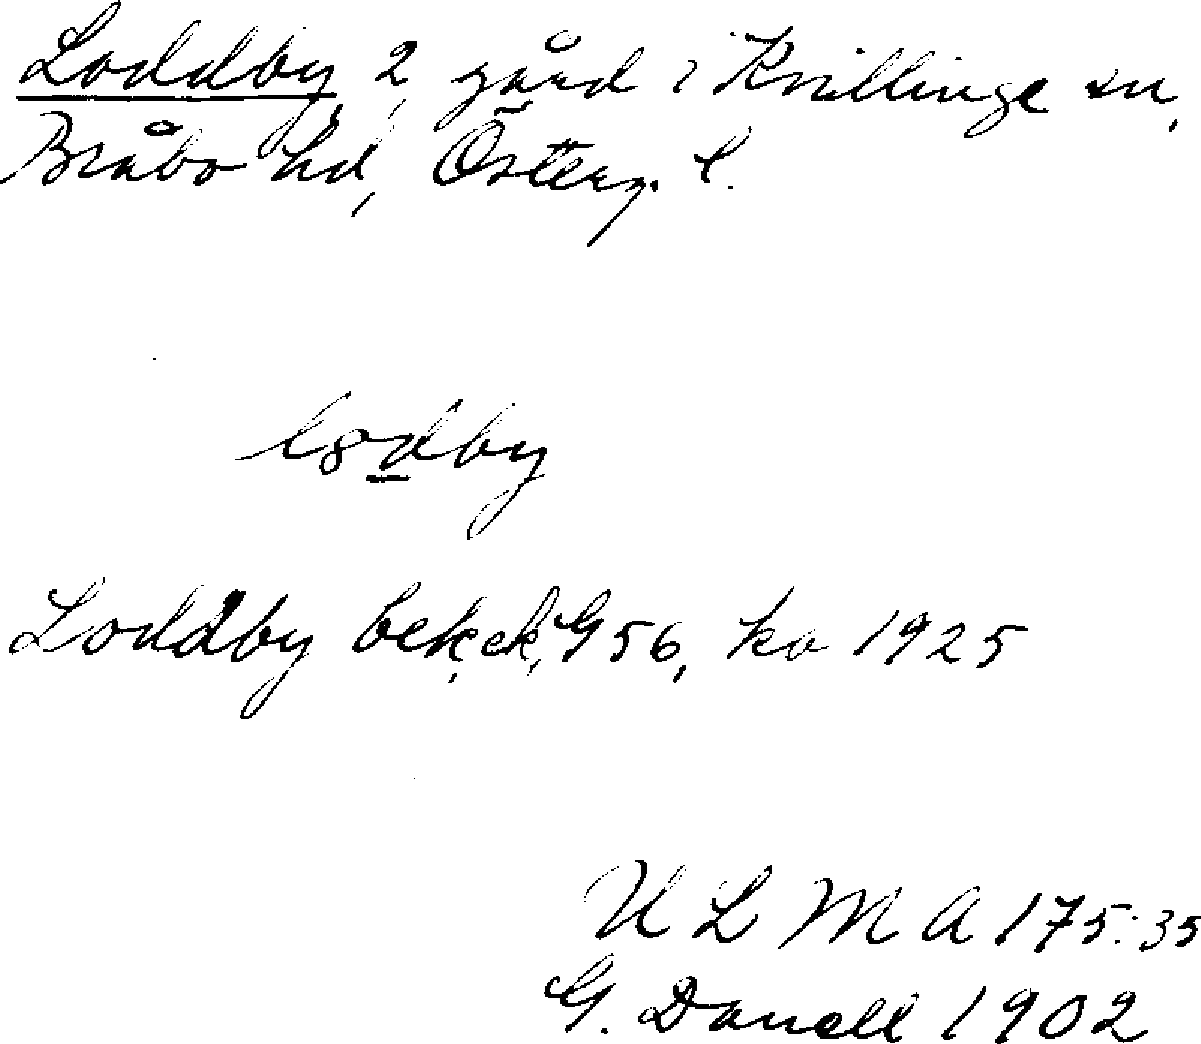 Loddby, 2, gård i Kvillinge sn,
Bråbo hd, Österg. l.
l8d̲by
Loddby bek.ek, G56, ka 1925
ULMA 175:35
G. Danell 1902